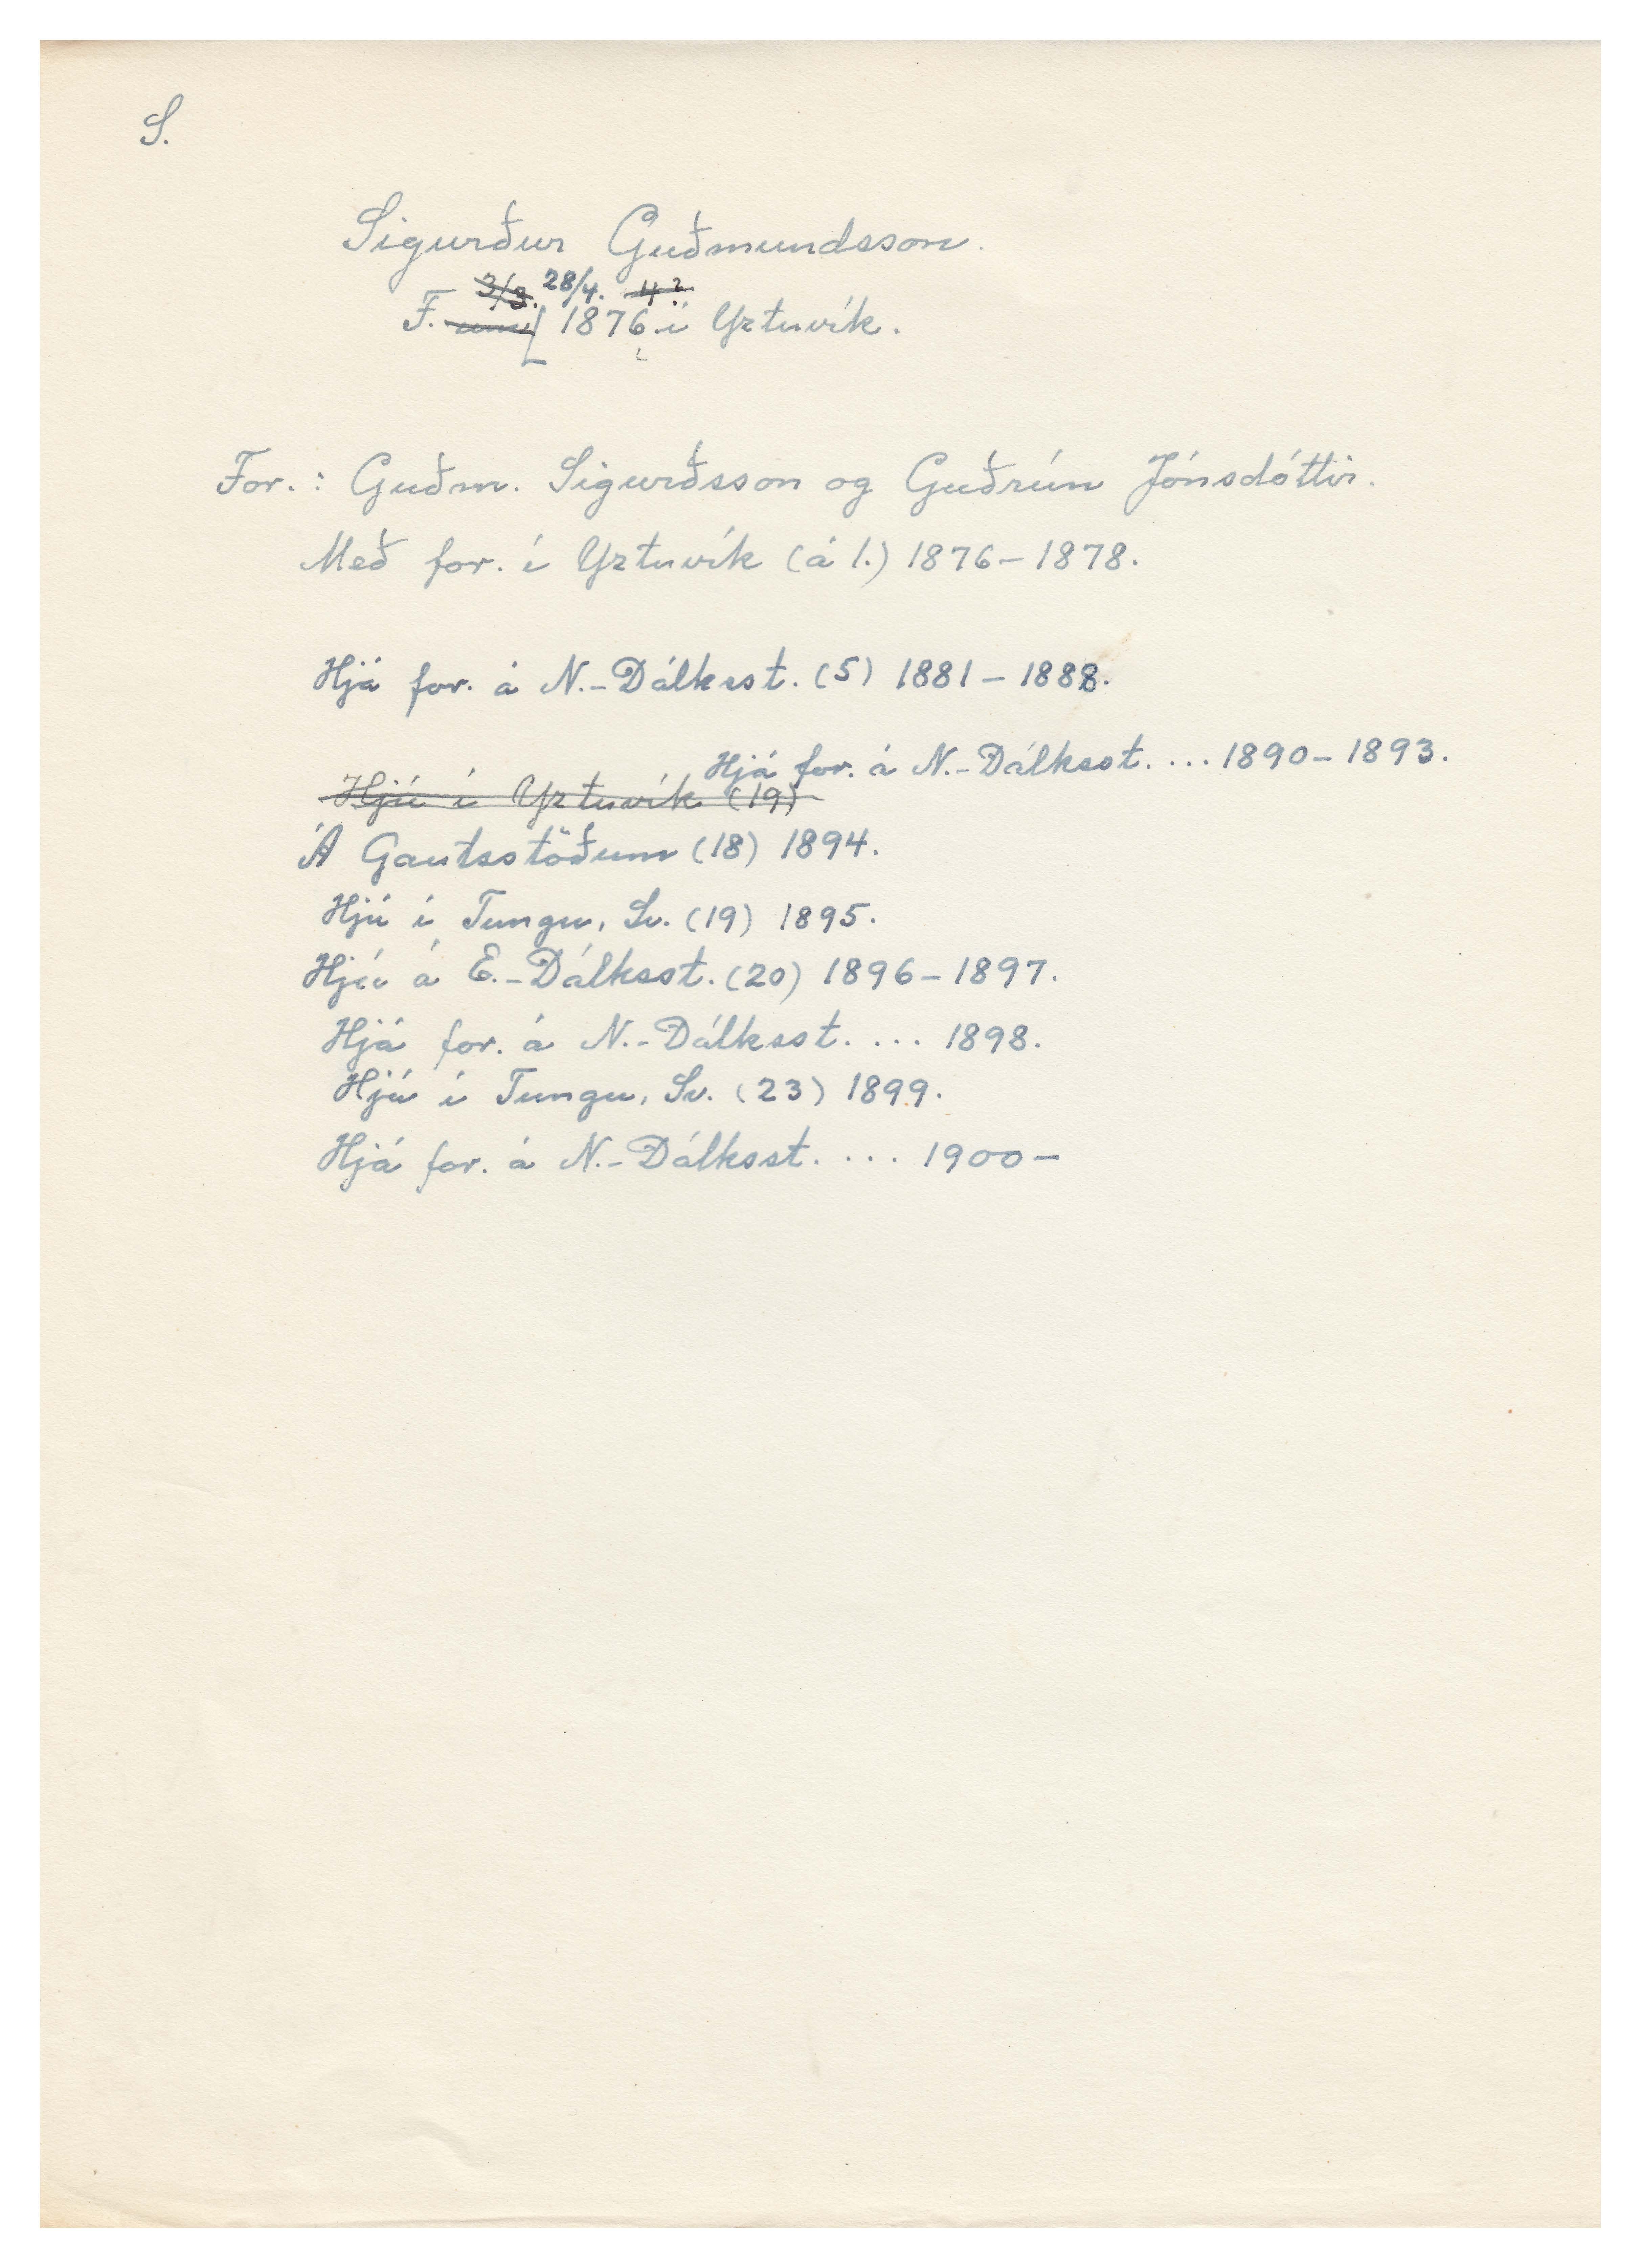 S.
Sigurður Guðmundsson.
3/3. 28/4. 4?
F. um 1876 í Yztuvík.
For.: Guðm. Sigurðsson og Guðrún Jónsdóttir.
Með for. í Yztuvík (á 1.) 1876-1878.
Hjá for. á N.-Dálksst. (5) 1881-1888.
Hjá for. á N.-Dálksst. ... 1890-1893.
Hjú í Yztuvík (19)
Á Gautsstöðum (18) 1894.
Hjú í Tungu, Sv. (19) 1895.
Hjú á E.-Dálksst. (20) 1896-1897.
Hjá for. á N.-Dálksst. ... 1898.
Hjú í Tungu, Sv. (23) 1899.
Hjá for. á N.-Dálksst. ... 1900-